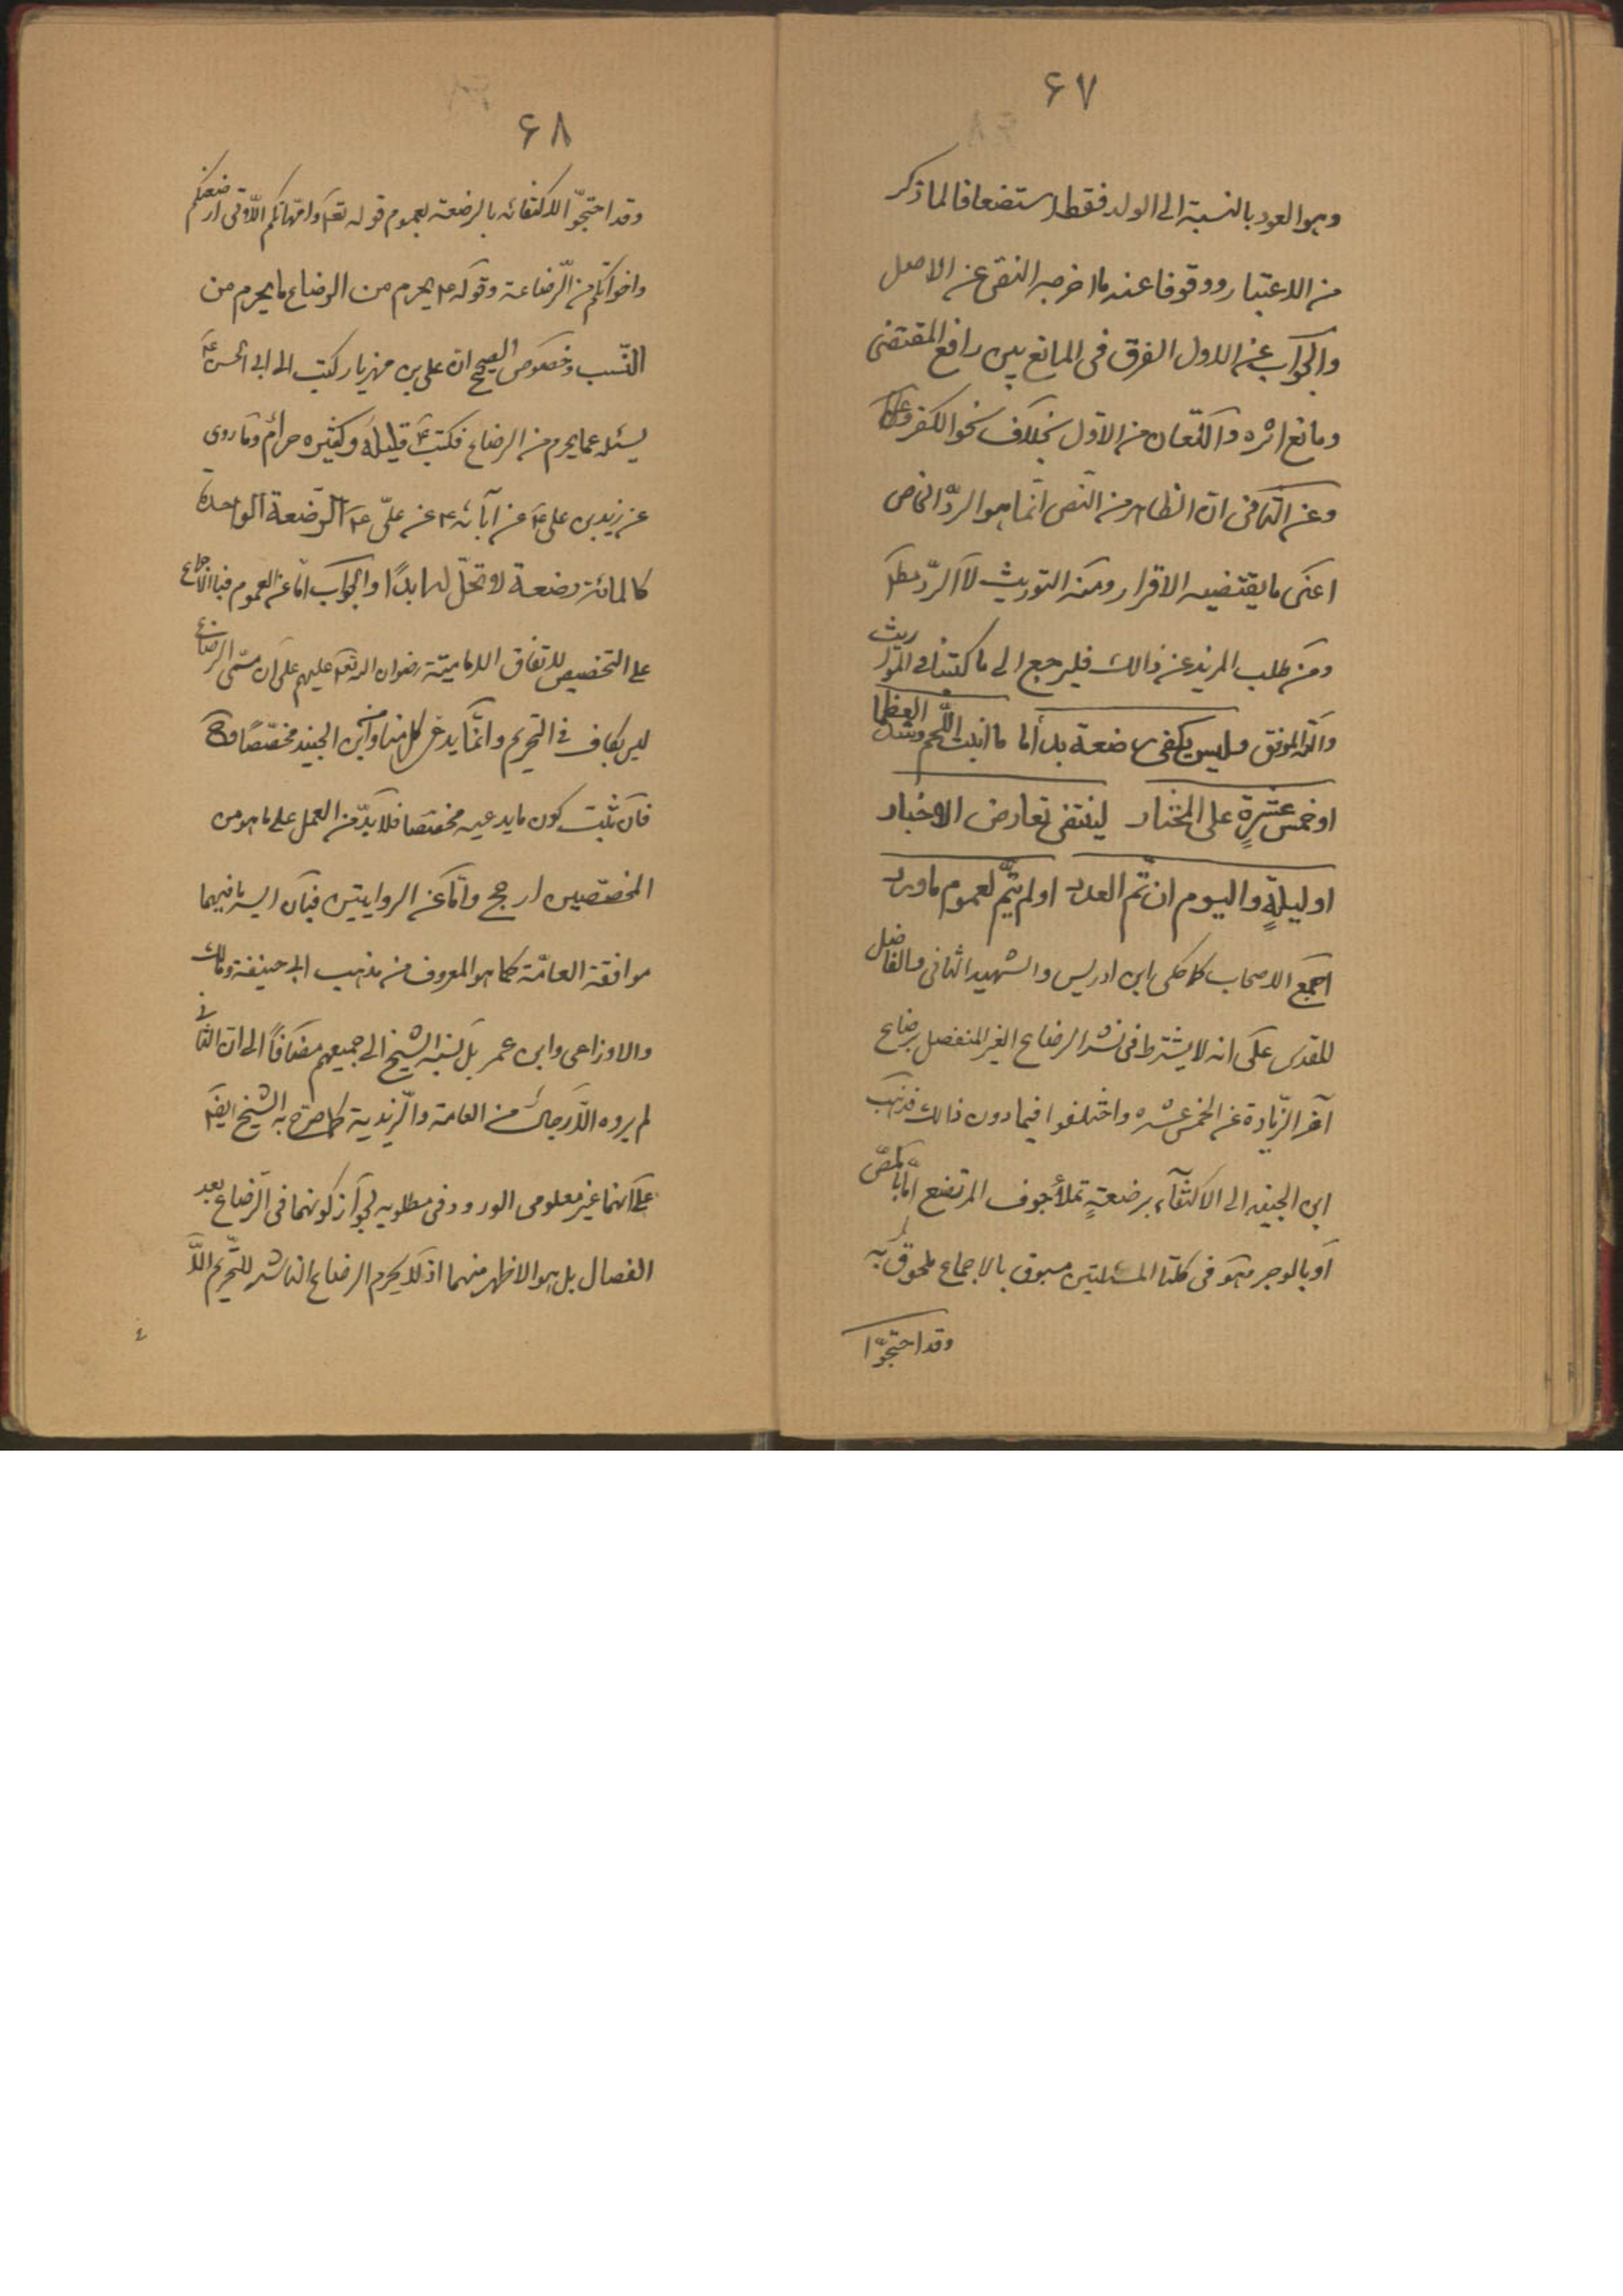 ۶۷
وهو العود بالنسبة الى الولد فقط استضعافا لما ذكر
من الاعتبار ووقوفا عند ما اخرجه النص عن الاصل
والجواب عن الاول الفرق فى المانع بين رافع المقتضى
ومانع اثره واللعان من الاول بخلاف نحو الكفر
وعن الثانى ان الظاهر من النص انما هو الردّ الخاص
اعنى ما يقتضيه الاقرار ومنه التوريث لا الردّ مطلقا
ومن طلب المزيد عن ذالك فليرجع الى ما كتبناه فى المواريث
والله الموفق وليس يكفى رضعة بل اما ما انبت اللّحم وشدّ العظما
او خمس عشرةٍ على المختار لينتفى تعارض الاخبار
او ليلةٍ واليوم ان تمّ العدد او لم يتمّ لعموم ما ورد
اجمع الاصحاب كما حكى ابن ادريس والشهيد الثانى والفاضل
المقدس على انه لا يشترط فى نشر الرضاع الغير المنفصل برضاع
آخر الزّيادة عن الخمس عشره واختلفوا فيما دون ذالك فذهب
ابن الجنيد الى الاكتفآء برضعةٍ تملأ جوف المرتضع امّا بالمصّ
او بالوجر وهو فى كلتا المسئلتين مسبوق بالاجماع ملحوق به
وقد احتجّوا
۶۸
وقد احتجّوا للاكتفائه بالرضعة بعموم قوله تعالى وامّهاتكم اللّاتى ارضعنكم
واخواتكم من الرّضاعة وقوله ع يحرم من الرضاع ما يحرم من
النّسب وخصوص الصحيح ان على بن مهزيار كتب الى ابى الحسن ع
يسئله عما يحرم من الرضاع فكتب ع قليله وكثيره حرام وما روى
عن زيد بن على ع عن آبائه ع عن علىّ ع الرّضعة الواحدة
كالمائة رضعة لا تحلّ له ابدًا والجواب امّا عن العموم فبالاجماع
على التخصيص لاتفاق الاماميّة رضوان الله تعالى عليهم على ان مسمّى الرضاع
ليس بكاف فى التحريم وانما يدعى كل منا وابن الجنيد مخصّصًا
فان ثبت كون ما يدعيه مخصّصا فلا بدّ من العمل على ما هو من
المخصّصين ارجح وامّا عن الروايتين فبان السر فيهما
موافقة العامّة كما هو المعروف من مذهب ابى حنيفة ومالك
والاوزاعى وابن عمر بل نسبه الشيخ الى جميعهم مضافاً الى ان الثانى
لم يروه الّا رجال من العامة والزيدية كما صرح به الشيخ ايضا
على انهما غير معلومى الورود فى مطلوبه لجواز كونهما فى الرّضاع بعد
الفصال بل هو الاظهر منهما اذ لا يحرم الرضاع الناشر للتّحريم الّا